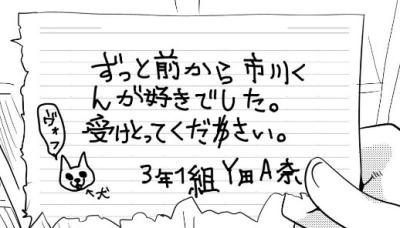 ずっと前から市川く
んが好きでした。
受けとってください。
ヴォフ
←犬
3年1組 Y田A奈